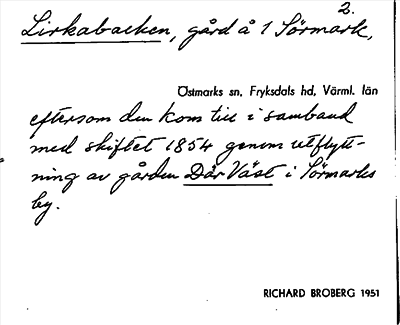 2.
Lirkabacken, gård å 1 Sörmark,
Östmarks sn, Fryksdals hd, Värml. län
eftersom den kom till i samband
med skiftet 1854 genom utflytt-
ning av gården Där Väst i Sörmarks
by.
RICHARD BROBERG 1951